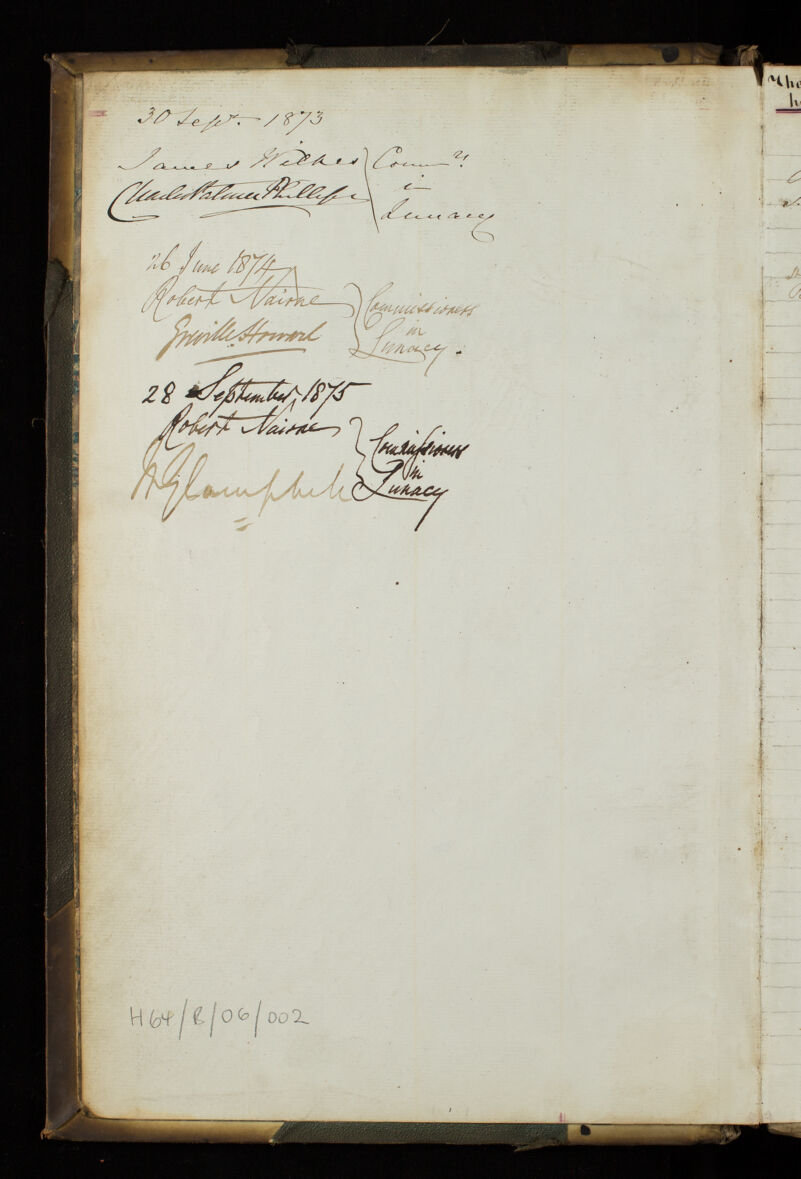 30 Sept. 1873
James Wilkes } Commrs
Charles Palmer Phillips } in
Lunacy
26 June 1874
Robert Nairne } Commissioners
Greville Howard } in
Lunacy.
28 September, 1875
Robert Nairne } Commissioners
in
Campbell } Lunacy
H64/B/06/002